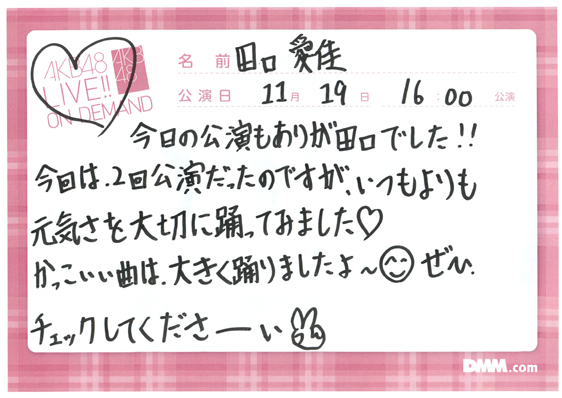 AKB48
LIVE!!
ON DEMAND
AKB
48
名前 田口 愛佳
公演日 11月 19日 16:00 公演
今日の公演もありが田口でした!!
今回は、2回公演だったのですが、いつもよりも
元気さを大切に踊ってみました♡
かっこいい曲は、大きく踊りましたよ～ ぜひ、
チェックしてくださーい
DMM.com